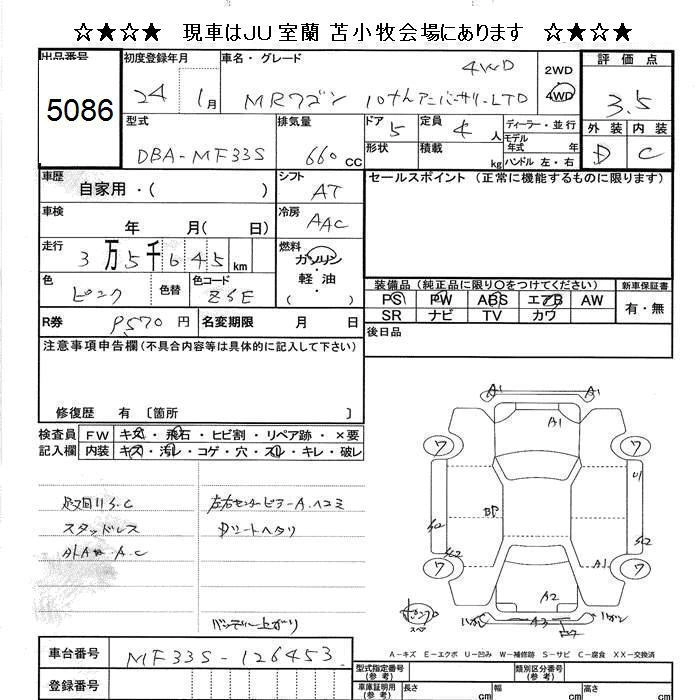 ☆★☆★ 現車はJU室蘭 苫小牧会場にあります ☆★☆★
出品番号
5086
初度登録年月
24 1月
車名・グレード
4WD
MRワゴン 10thアニバーサリーLTD
2WD
4WD
評価点
3.5
外装 内装
D C
型式
DBA-MF33S
排気量
660 CC
ドア 5
形状
定員 4 人
積載 kg
ディーラー・並行
モデル年式 年
ハンドル 左・右
車歴
自家用・( )
シフト
AT
セールスポイント(正常に機能するものに限ります)
車検
年 月( 日)
冷房
AAC
走行
3万5千645km
燃料
ガソリン
・軽油
( )
色
ピンク
色替
色コード
ZSE
装備品(純正品に限り〇をつけてください)
PS PW ABS エアB AW
SR ナビ TV カワ
新車保証書
有・無
R券 8570円
名変期限 月 日
後日品
注意事項申告欄(不具合内容等は具体的に記入して下さい)
修復歴 有 〔箇所 〕
検査員記入欄
FW キズ・飛石・ヒビ割・リペア跡・×要
内装 キズ・汚レ・コゲ・穴・スレ・キレ・破レ
S.C
スタッドレス
A.C
左右センターピラーA.ヘコミ
Dシートヘタリ
バッテリー上がり
A1 A1
A1
ワ ワ
U1
BP
S2 S2 S2
A1
ワ ワ
A2
A3
スペ
A-キズ E-エクボ U-凹み W-補修跡 S-サビ C-腐食 XX-交換済
車台番号
MF33S-126453
登録番号
型式指定番号(参考)
類別区分番号(参考)
車庫証明用(参考)
長さ cm
幅 cm
高さ cm